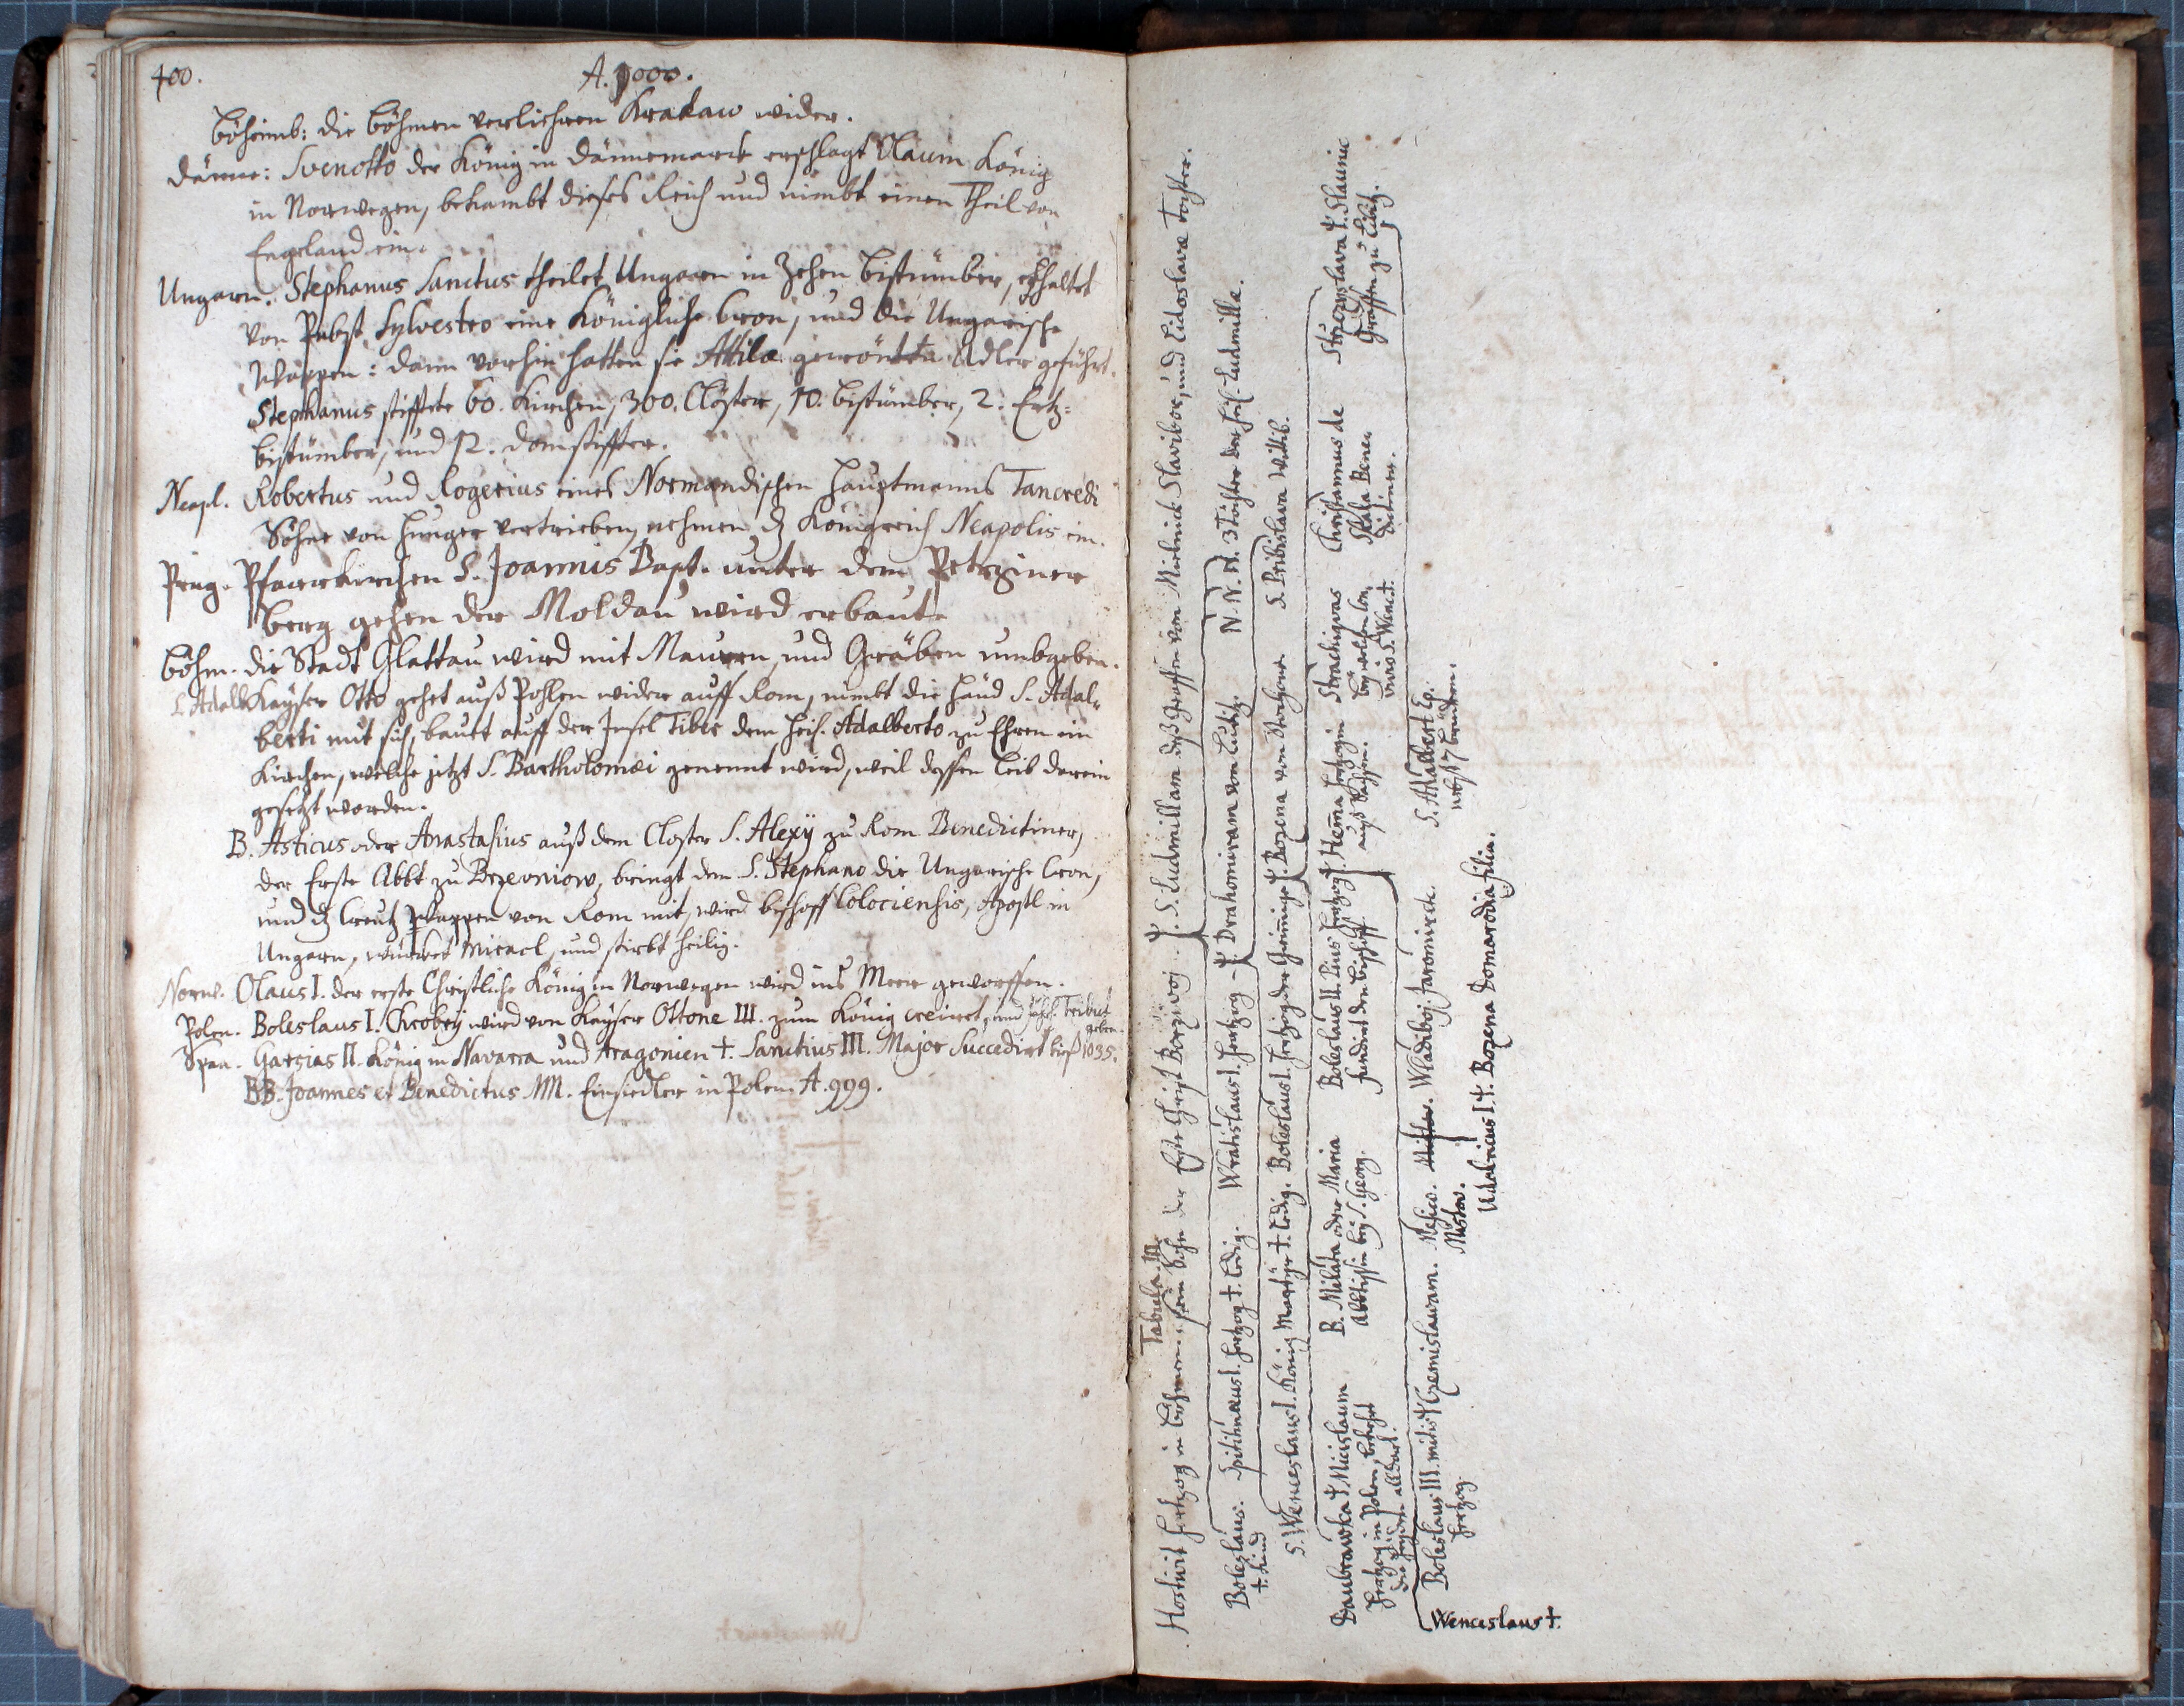 400.
A. 1000.
Böheimb: die Böhmen verliehren Krakaw wider.
Dänne: Svenotto der König in Dännemarck erschlagt Olaum König
in Norwegen, bekambt dieses Reich und nimbt einen Theil von
Engeland ein.
Ungarn. Stephanus Sanctus theilet Ungarn in Zehen Bistümber, erhaltet
von Pabst Sylvestro eine Königliche Cron, und die Ungarische
Wappen: dann vorhin hatten sie Attilæ gecrönten Adler geführt.
Stephanus stifftete 60. Kirchen, 300. Clöster, 10. Bistümber, 2. Ertz-
bistümber, und 12. Domstiffter.
Neapl. Robertus und Rogerius eines Normandischen Hauptmanns Tancredi
Söhne von Hunger vertrieben, nehmen dz Königreich Neapolis ein.
Prag. Pfarrkirchen S. Joannis Bapt. unter dem Petrziner
berg gehen der Moldau wird erbaut.
Böhm. die Stadt Glattau wird mit Mauren, und Gräben umbgeben.
S. Adalb. Kayser Otto gehet auß Pohlen wider auff Rom, nimbt die Händ S. Adal-
berti mit sich, bauet auff der Insel Tiber dem Heil. Adalberto zu Ehren ein
Kirchen, welche jetzt S. Bartholomæi genennt wird, weil dessen Leib darein
gesetzt worden.
B. Asticus oder Anastasius auß dem Closter S. Alexij zu Rom Benedictiner,
der Erste Abbt zu Brzevniow, bringt dem S. Stephano die Ungarische Cron,
und dz Creutz Wappen von Rom mit, wird Bischoff Colociensis, Apostl in
Ungarn, würcket Miracl, und stirbt heilig.
Norw. Olaus I. der erste Christliche König in Norwegen wird ins Meer geworffen.
Polen. Boleslaus I. Chrobrij wird von Kayser Ottone III. zum König creiret, und jährl. Tribut
geben.
Span. Garsias II. König in Navarra und Aragonien †. Sanctius III. Major Succedirt biß 1035.
BB. Joannes et Benedictus MM. Einsiedler in Polen A. 999.
Tabula III.
Hostivit Hertzog in Böhmen. sein Sohn der Erste Christ Borzivoj. S. Ludmillam deß Graffen von Mielnick Slavibor, und Lidoslavæ Tochter.
Boleslaus. Spitihnæus I. Hertzog †. ledig. Wratislaus I. Hertzog. Drahomiram von Luditz. N. N. N. 3 Töchter der Heil. Ludmillæ.
†. Kind
S. Wenceslaus I. König Martyr †. ledig. Boleslaus I. Hertzog der Grimige. Bozena von Stochow. S. Pribislava Wittib.
Daubrawka Miecislaum
Hertzog in Polen, bekehrt
die Heyden alldort.
B. Milada oder Maria
Abbtissin bey S. Georg.
Boleslaus II. Pius Hertzog. Hema Hertzogin
fundirt den Bischoff. auß Sachsen.
Strachiqvas
Christannus de
Skala Bene-
dictiner.
Strzezislava. Slavnic
Graffen zu Libitz.
Boleslaus III. mitis Hertzog.
Mesico. Mistow. Wladiboj. Jaromirck.
S. Adalbert Ep.
Udalricus I. Bozena Domarodia filia.
Wenceslaus †.